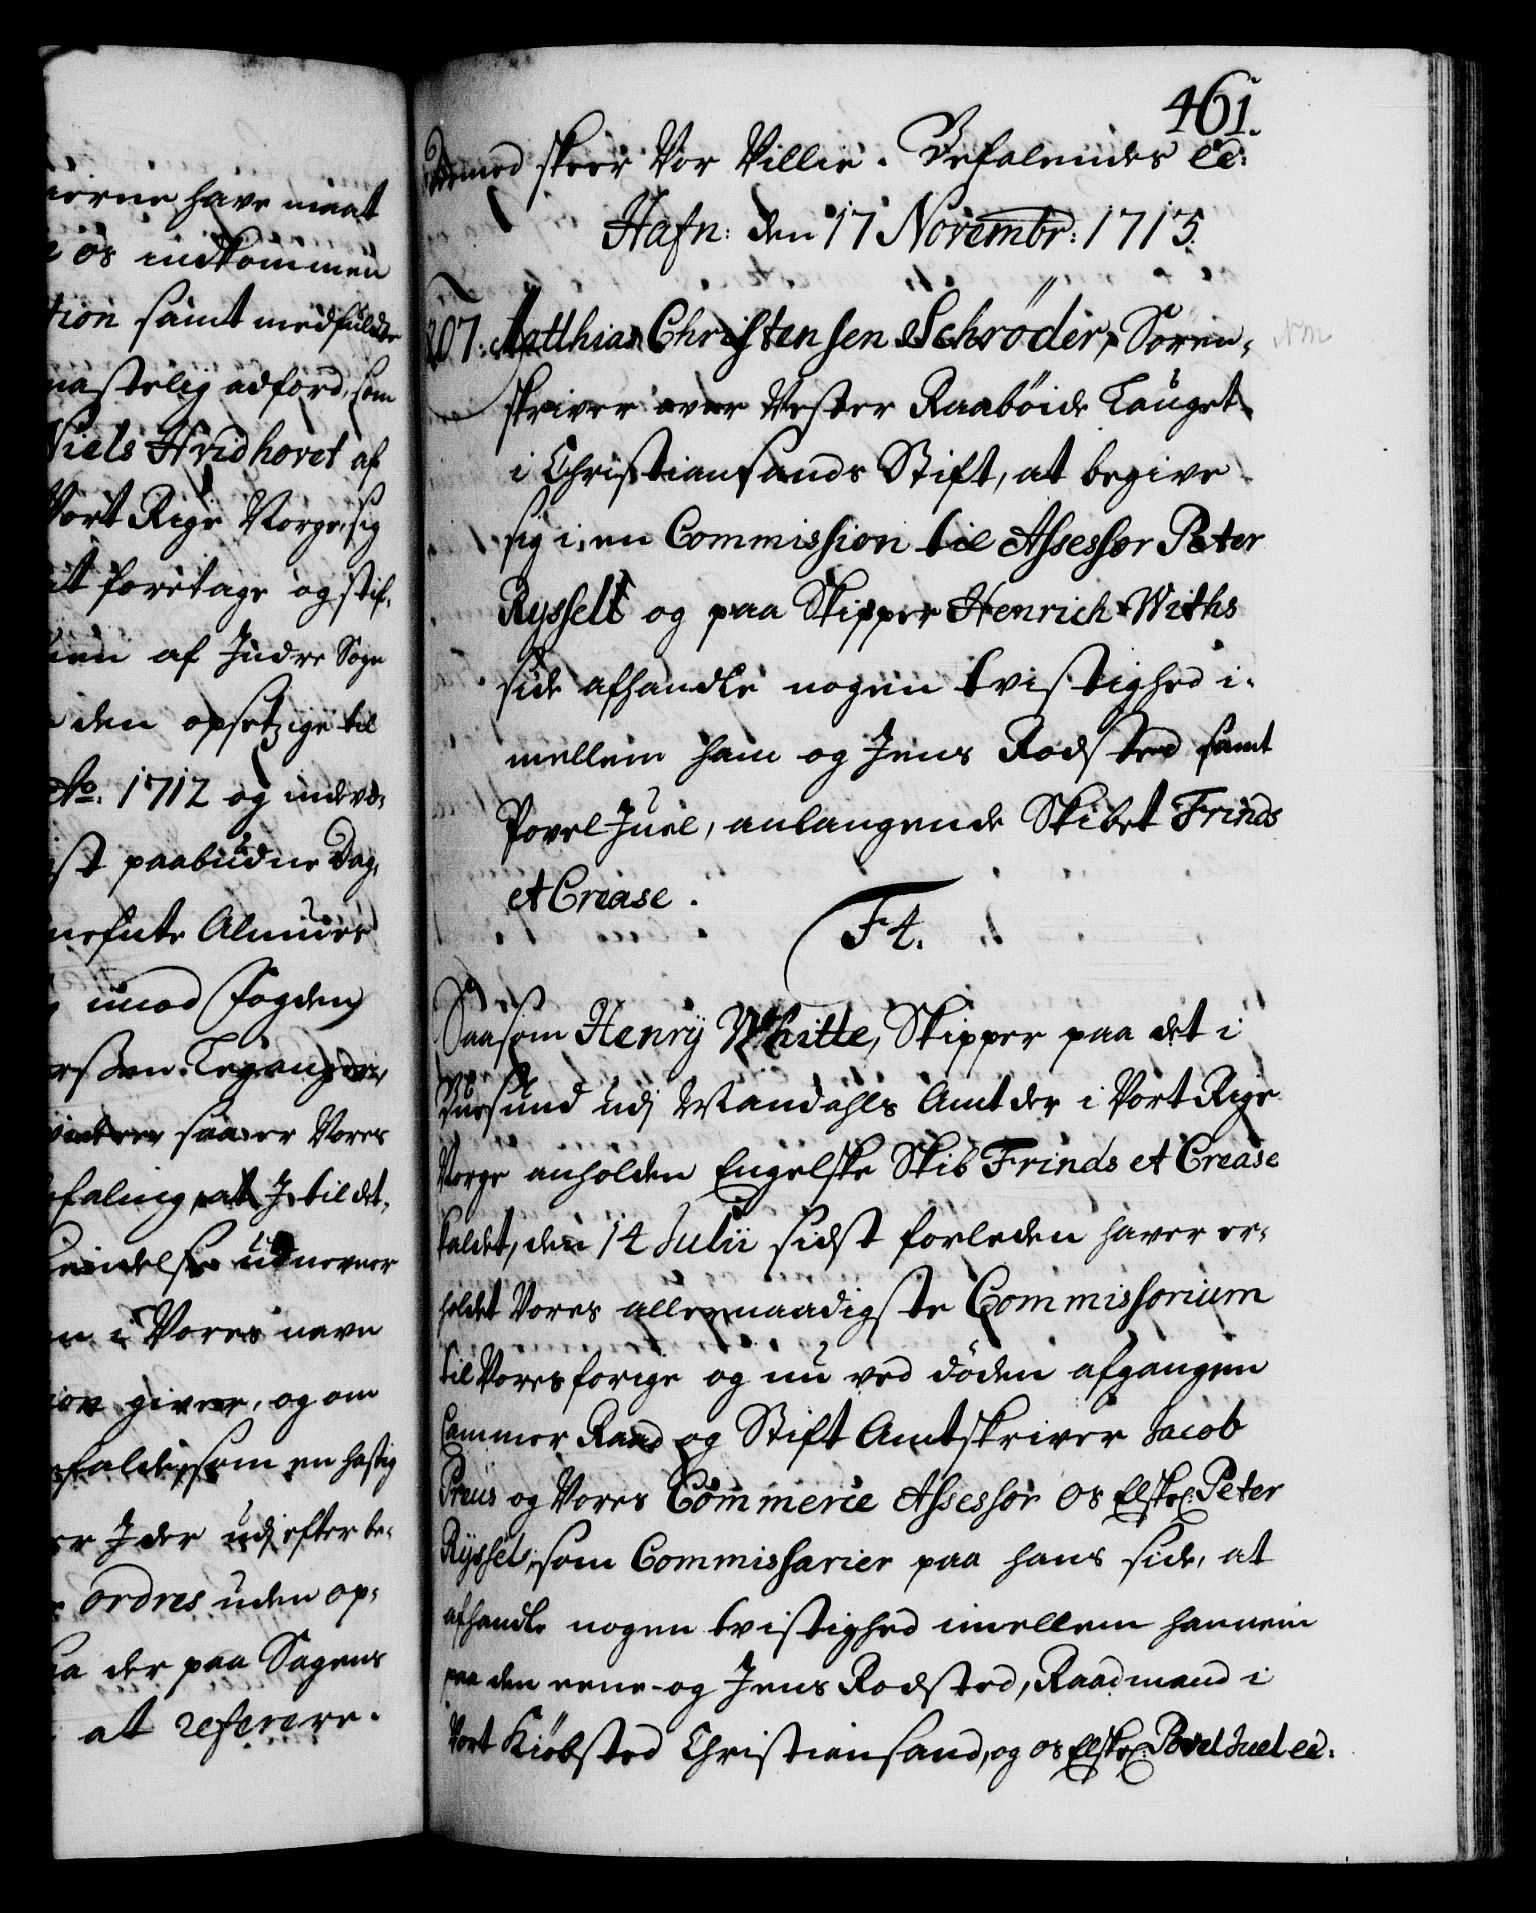 ierne have maat
os indkommen
tion samt medfulde
nastelig adford, som
Niels Hvidhovet af
Vort Rige Norge, sig
at foretage og stif-
uen af Indre Sogn
den opsetzige til
Ao: 1712 og udi
st paabudne Dag,
Almues
imod Fogden
saa er Vores
faling, at I til det,
udnevner
i Vores navn
giver, og om
falde, som en hastig
er I der udj efter be-
ordres uden op-
der paa Sagens
at referere.
461.
Dermed skeer Vor Villie. Befalendes etc:
Hafn: den 17 Novembr: 1713
207. Matthias Christensen Schrøder, Soren-
skriver over Vester Raabøide Lauget
i Christiansands Stift, at begive
sig i en Commission til Assessor Peter
Rysselt og paa Skipper Henrich Withs
side afhandle nogen tvistighed i-
mellem ham og Jens Rodsted samt
Povel Juel, anlangende Skibet Frinds
et Crease.
F4.
Saasom Henry Whitte, Skipper paa det i
udj Mandahls Amt der i Vort Rige
Norge anholden Engelske Skib Frinds et Crease
kaldet, den 14 Julii sidst forleden haver er-
holdet Vores allernaadigste Commissorium
til Vores forige og nu ved døden afgangen
Cammer Raad og Stift Amtskriver Jacob
Preüs og Vores Commerce Assessor os Elskel: Peter
Ryssel, som Commissarier paa hans side, at
afhandle nogen tvistighed imellem hannem
paa den eene- og Jens Rodsted, Raadmand i
Vort Kiøbsted Christiansand, og os Elskel: Povel Juel etc: